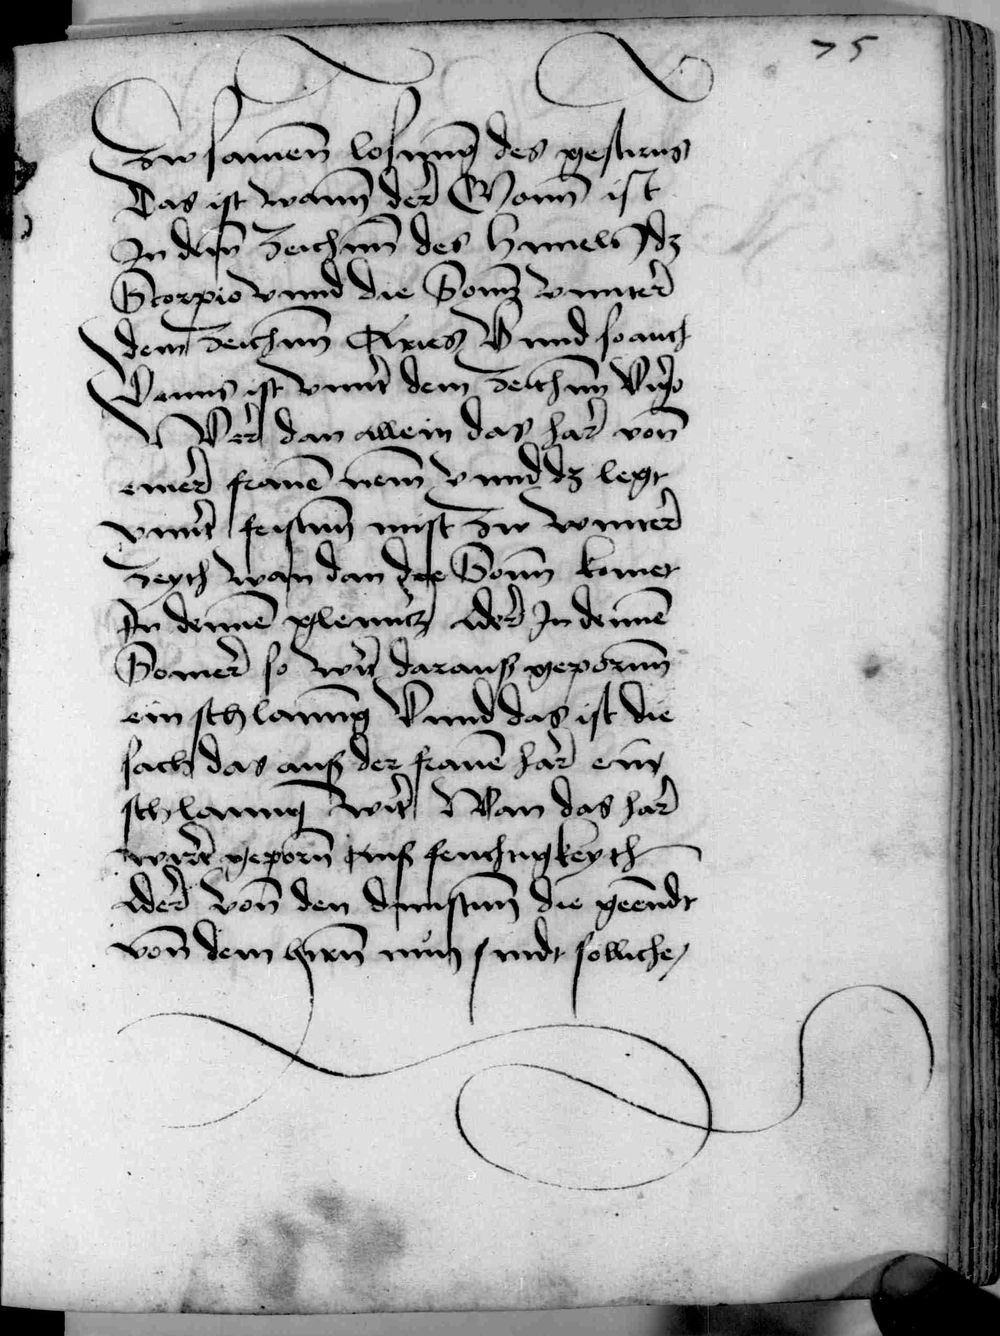 75
Zw samen losung des gestirns
Das ist wann der Monn ist
In dem Zeichnn des himels dz
Scorpio vnnd die Sonn vnnter
dem Zeichnn Aries Vnnd so auch
Venus ist vnnt dem Zeichnn Virgo
Wer dan allein das har von
einer frauen nem vnnd dz legt
vnnt feistnn mist Zw wintter
Zeyth wan dan die Sonn komet
In dennen glenntz oder In dennen
Somer so wirt darauß geporenn
ein schlanng Vnnd das ist die
sach das auß der frauen har ein
schlanng wirt Wan das har
wirt geporn auß feuchtigkeyth
oder von den dunstnn die geendt
von dem hirn nun sindt solliche